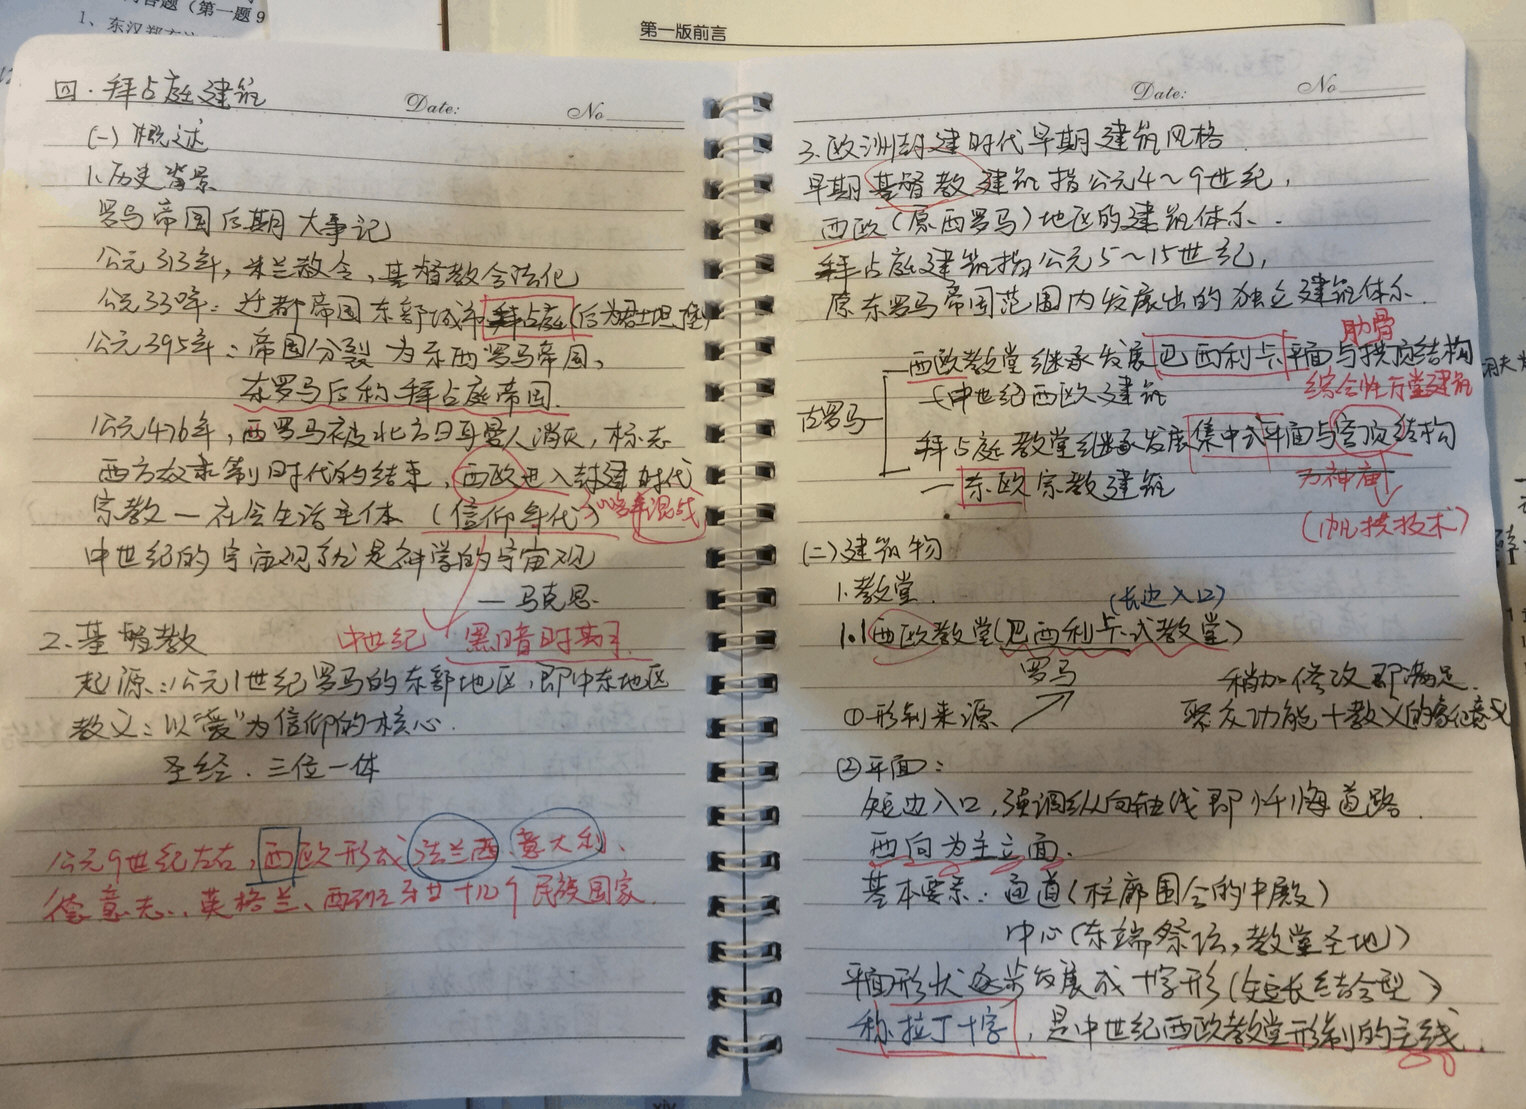 第一版前言
四.拜占庭建筑
Date: No
(一)概述
1.历史背景
罗马帝国后期大事记
公元313年，米兰敕令，基督教合法化
公元330年：迁都帝国东部城市拜占庭(后为君士坦丁堡)
公元395年：帝国分裂为东西罗马帝国、
东罗马后称拜占庭帝国.
公元476年，西罗马被北方日耳曼人消灭，标志
西方奴隶制时代的结束，西欧进入封建时代
宗教一社会生活主体（信仰年代）
混战
中世纪的宇宙观就是神学的宇宙观
—马克思
2.基督教
中世纪 黑暗时期
起源：公元1世纪罗马的东部地区，即中东地区
教义：以“爱”为信仰的核心.
圣经.三位一体
公元9世纪左右，西欧形成法兰西、意大利、
德意志、英格兰、西班牙廿十几个民族国家.
Date: No
3.欧洲封建时代早期建筑风格.
早期基督教建筑指公元4~9世纪，
西欧(原西罗马)地区的建筑体系.
拜占庭建筑指公元5~15世纪，
原东罗马帝国范围内发展出的独立建筑体系.
肋骨
西欧教堂继承发展巴西利卡平面与拱顶结构
综合性厅堂建筑
一中世纪西欧建筑
古罗马
拜占庭教堂继承发展集中式平面与穹顶结构
一东欧宗教建筑
万神庙
(帆拱技术)
(二)建筑物
1.教堂.
(长边入口)
1.1西欧教堂(巴西利卡式教堂)
罗马
稍加修改即满足.
①形制来源
聚众功能+教义的象征意义
②平面：
短边入口，强调纵向轴线即忏悔道路.
西向为主立面.
基本要素：通道(柱廊围合的中殿)
中心(东端祭坛，教堂圣地)
平面形状逐步发展成十字形(短长结合型)
称拉丁十字，是中世纪西欧教堂形制的主线.